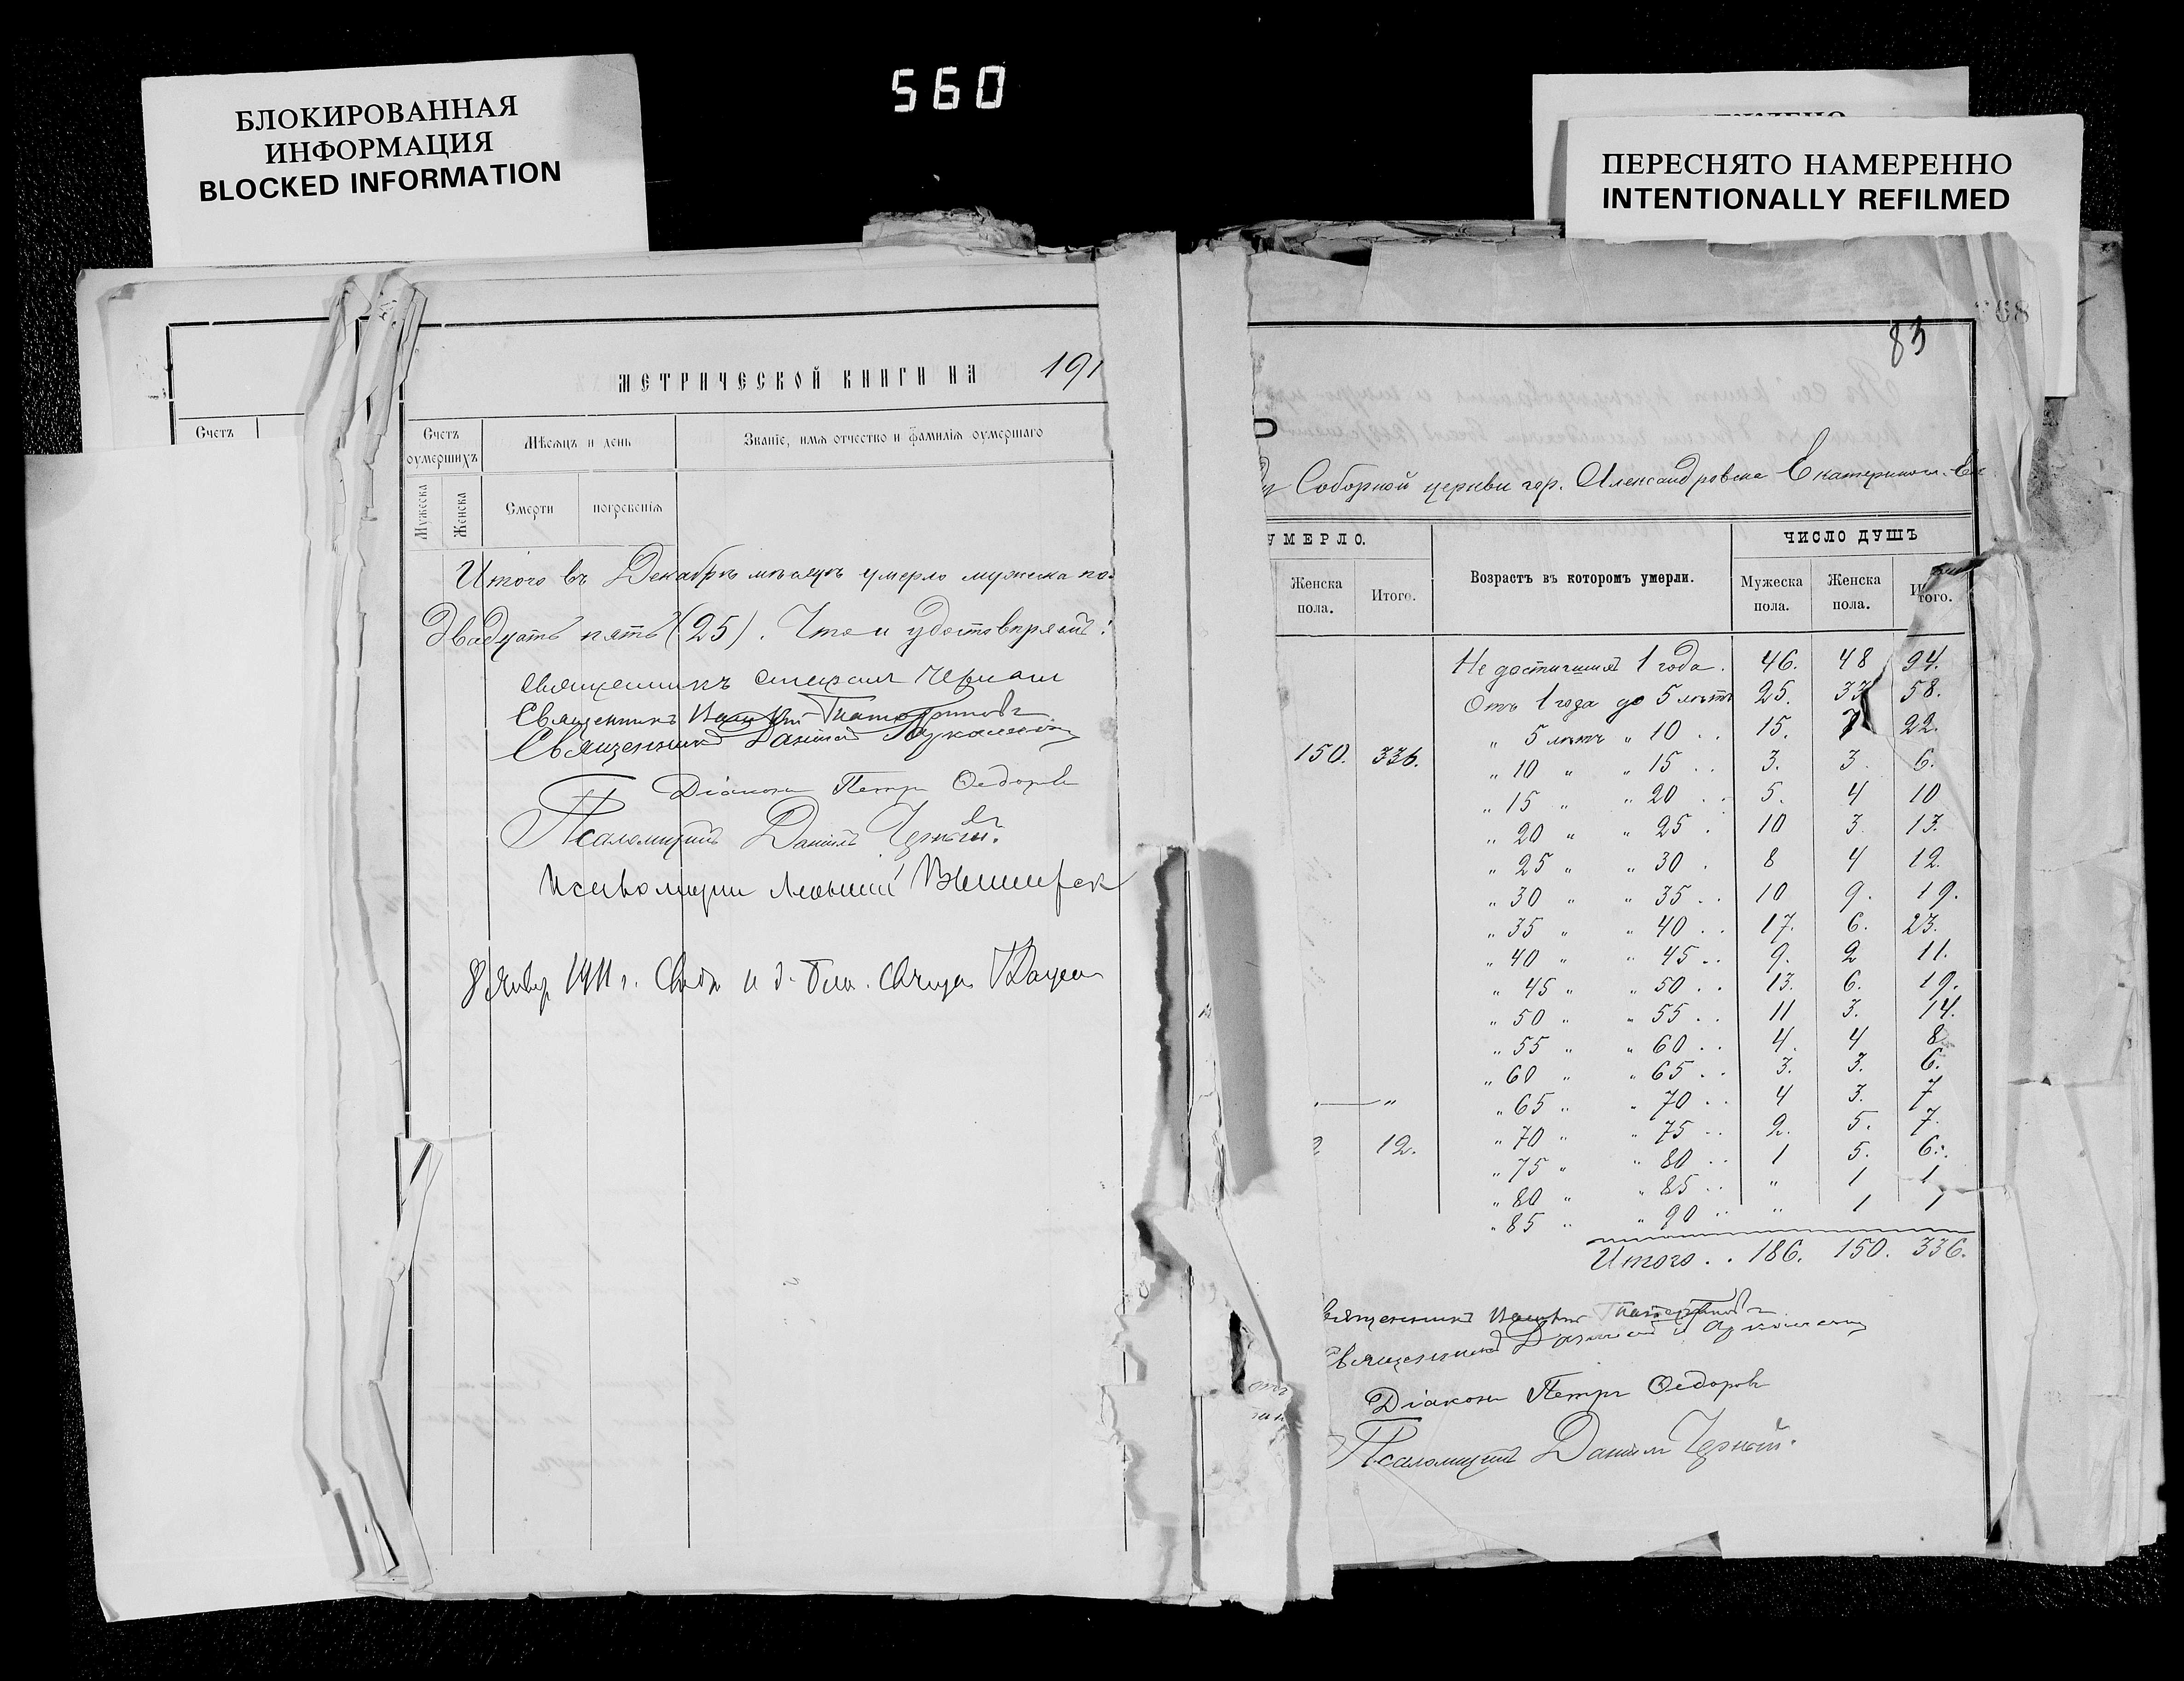 560
БЛОКИРОВАННАЯ
ИНФОРМАЦИЯ
BLOCKED INFORMATION
ПЕРЕСНЯТО НАМЕРЕННО
INTENTIONALLY REFILMED
Счетъ
МЕТРИЧЕСКОЙ КНИГИ НА 191
Счетъ оумершихъ
Мѣсяцъ и день
Званіе, имя отчество и фамилія оумершаго
Мужеска
Женска
Смерти
погребенія
Итого въ Декабрѣ мѣсяцѣ умерло мужеска по-
Двадцать пять (25). Что и удостовѣряемъ:
Священникъ
Священникъ
Священникъ Даніилъ
Діаконъ Петръ Ѳедоровъ
Псаломщикъ Даніилъ Черный.
8 Янвр 1911 г.
83
Соборной церкви гор. Александровска Екатеринослав
УМЕРЛО.
Женска пола.
Итого.
Возрастъ въ которомъ умерли.
ЧИСЛО ДУШЪ
Мужеска пола.
Женска пола.
Итого.
150. 336.
" — "
2 12.
Не достигшихъ 1 года. 46. 48 94.
Отъ 1 года до 5 лѣтъ 25. 33 58.
" 5 лѣтъ " 10 . . 15. 7 22.
" 10 " " 15 . . 3. 3. 6.
" 15 " " 20 . . 5. 4 10
" 20 " " 25 . 10 3. 13.
" 25 " " 30 . 8 4 12.
" 30 " " 35 . . 10 9. 19.
" 35 " " 40 . . 17. 6. 23.
" 40 " " 45 . . 9. 2 11.
" 45 " " 50 . . 13. 6. 19.
" 50 " " 55 . . 11 3. 14.
" 55 " " 60 . . 4. 4 8
" 60 " " 65 . . 3. 3. 6.
" 65 " " 70 . . 4 3. 7
" 70 " " 75 . . 2. 5. 7.
" 75 " " 80 . . 1 5. 6.
" 80 " " 85 . . " 1 1
" 85 " " 90 . . " 1 1
Итого . . 186. 150. 336.
вященникъ
Священникъ Даніилъ
Діаконъ Петръ Ѳедоровъ
Псаломщикъ Даніилъ Черный.